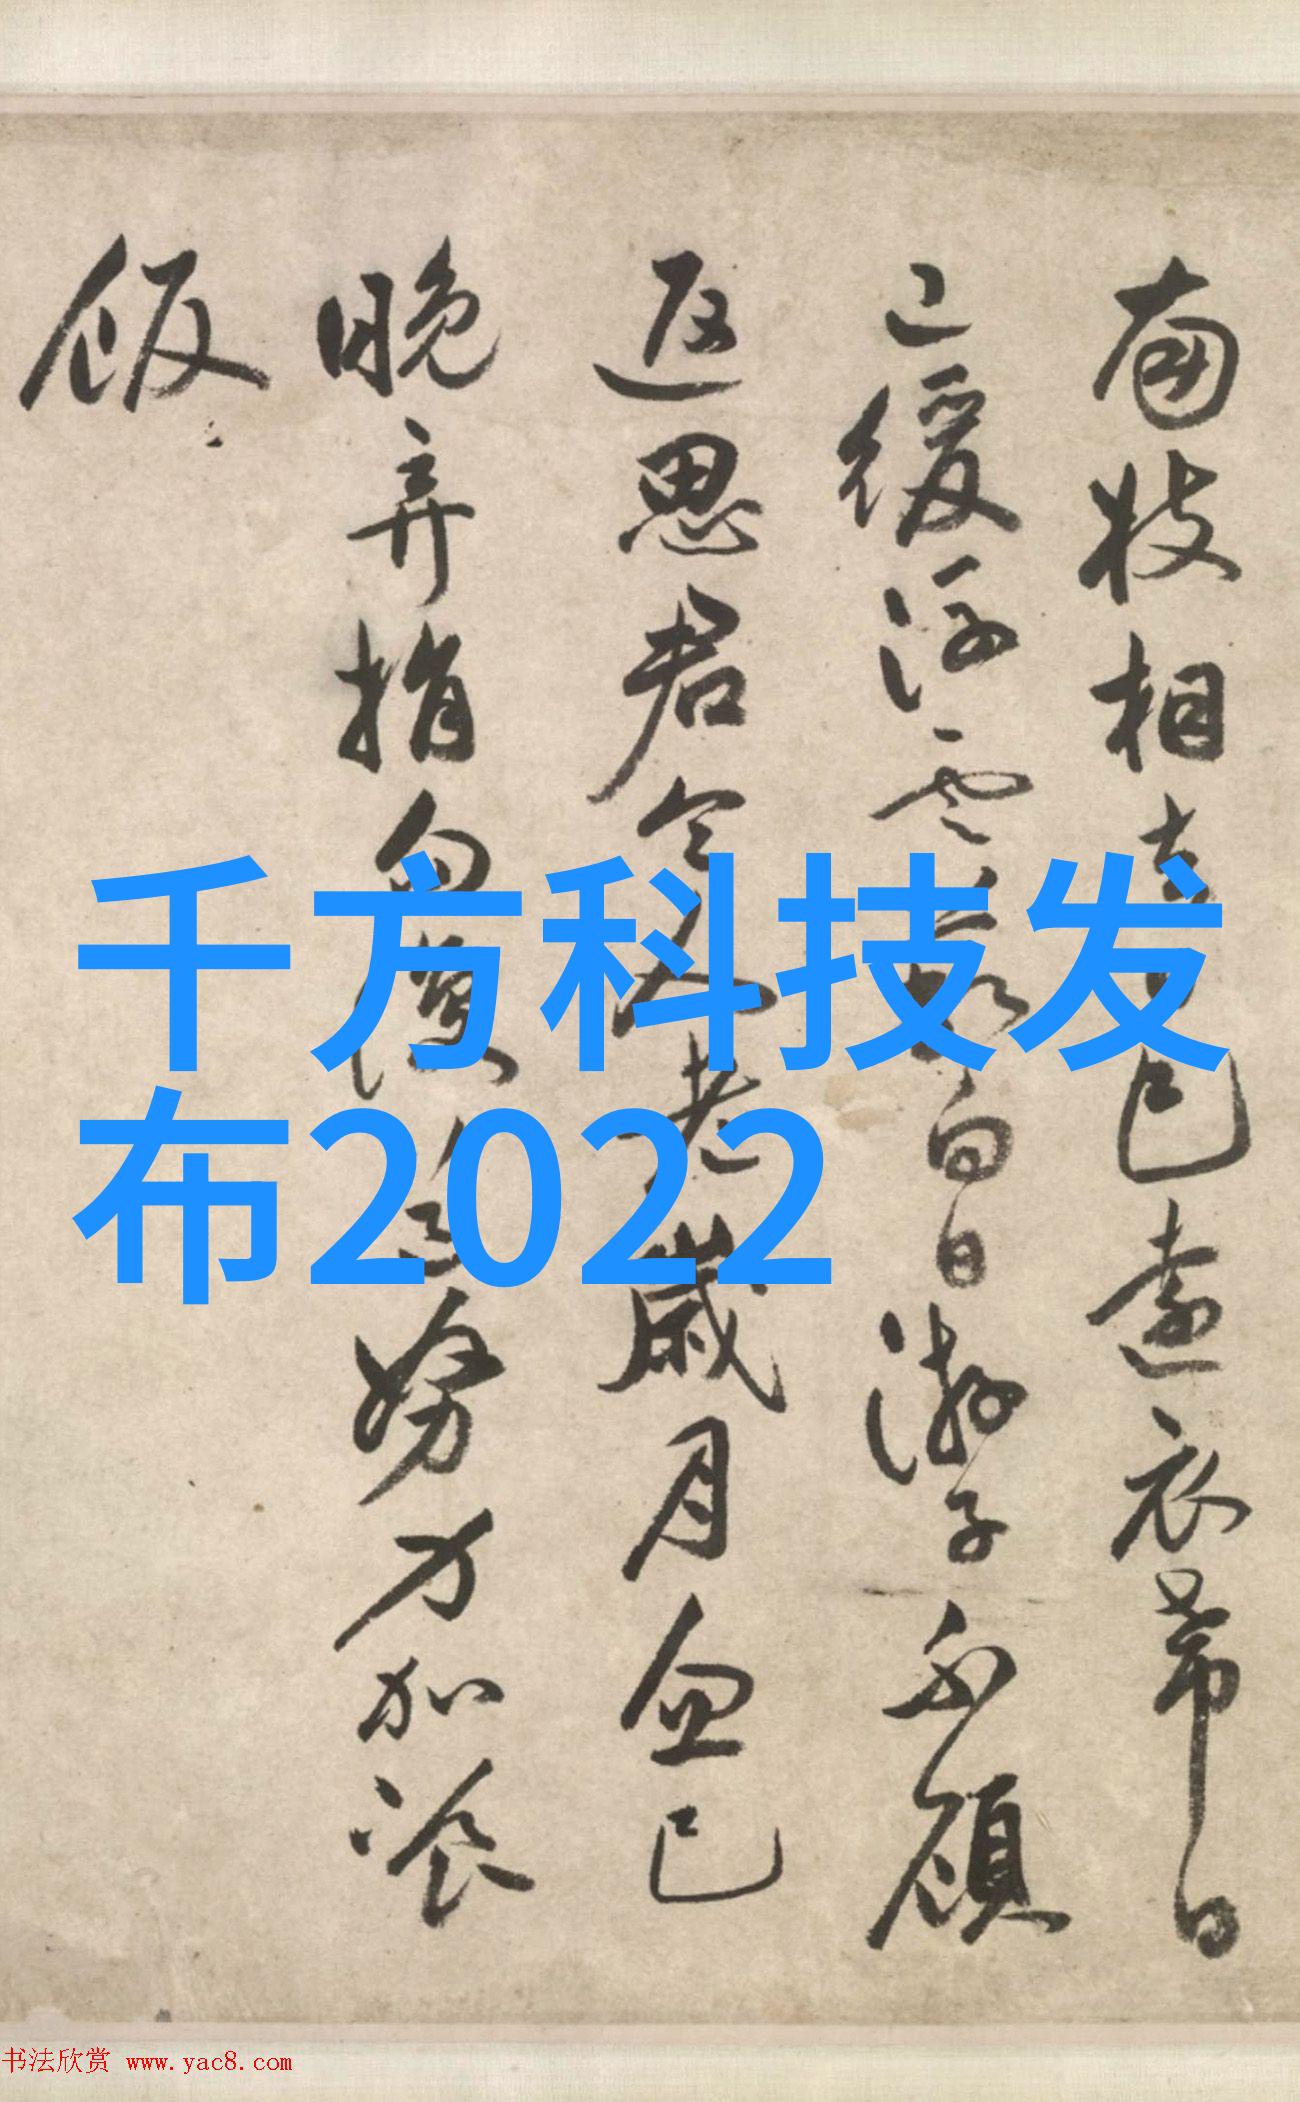 千方科技发
布2022
南枝相去已遠衣帶日
已緩浮雲蔽白日游子不顧
返思君令人老歲月已
晚弃捐勿復道努力加飡
飯
书法欣赏 www.yac8.com